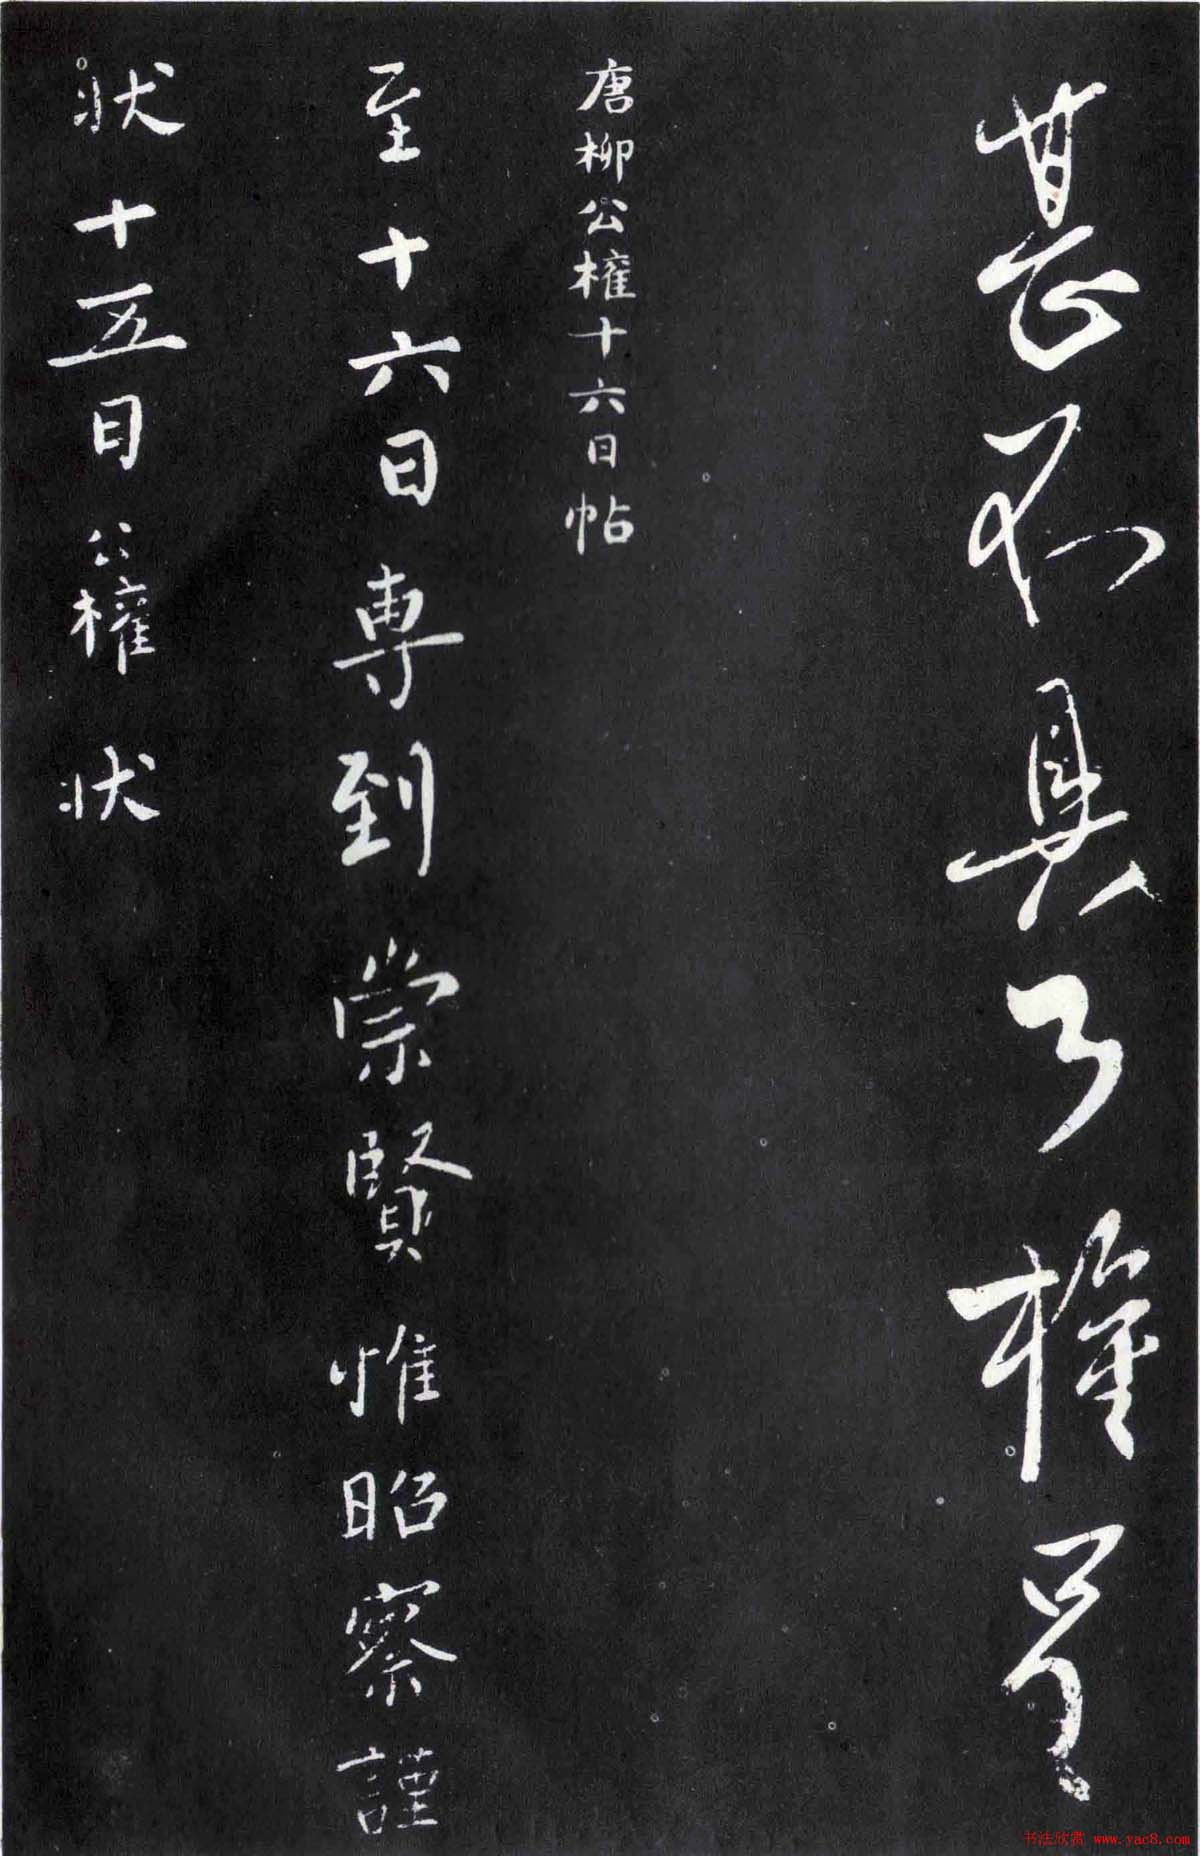 甚不具了權呈
唐柳公權十六日帖
至十六日專到崇賢惟昭察謹
狀十五日公權狀
书法欣赏 www.yac8.com